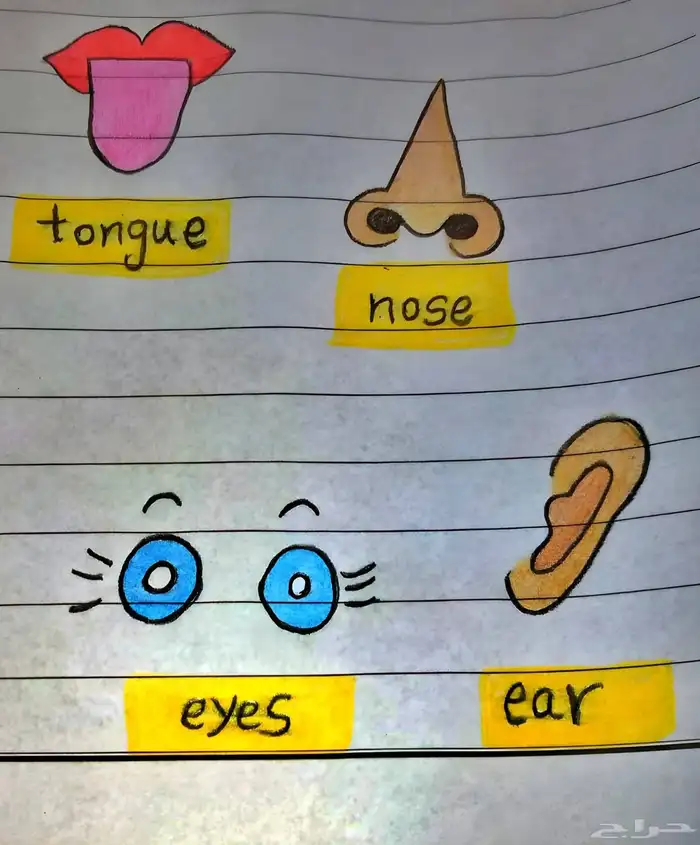 tongue
nose
eyes
ear
حراج